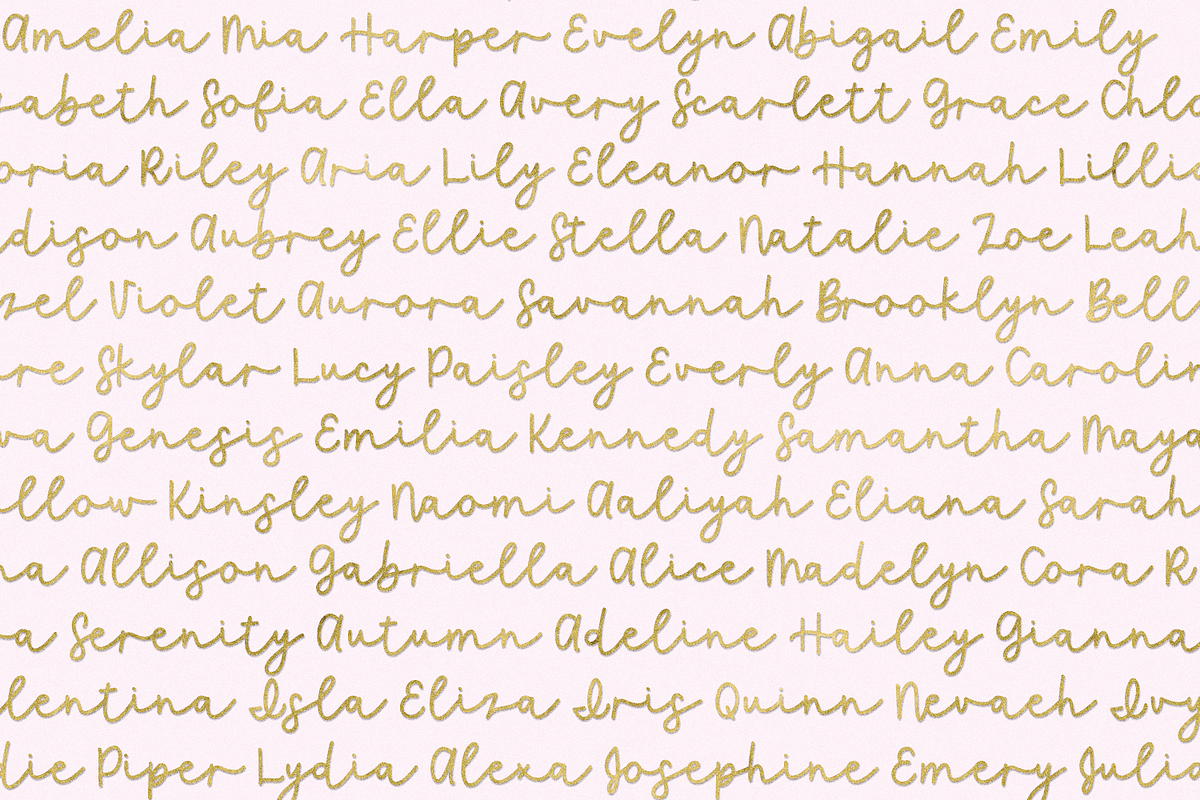 Amelia Mia Harper Evelyn Abigail Emily
zabeth Sofia Ella Avery Scarlett Grace Chlo
oria Riley Aria Lily Eleanor Hannah Lillia
dison Aubrey Ellie Stella Natalie Zoe Leah
zel Violet Aurora Savannah Brooklyn Bell
re Skylar Lucy Paisley Everly Anna Carolin
va Genesis Emilia Kennedy Samantha Maya
llow Kinsley Naomi Aaliyah Eliana Sarah
na Allison Gabriella Alice Madelyn Cora R
a Serenity Autumn Adeline Hailey Gianna
lentina Isla Eliza Iris Quinn Nevaeh Ivy
die Piper Lydia Alexa Josephine Emery Julia